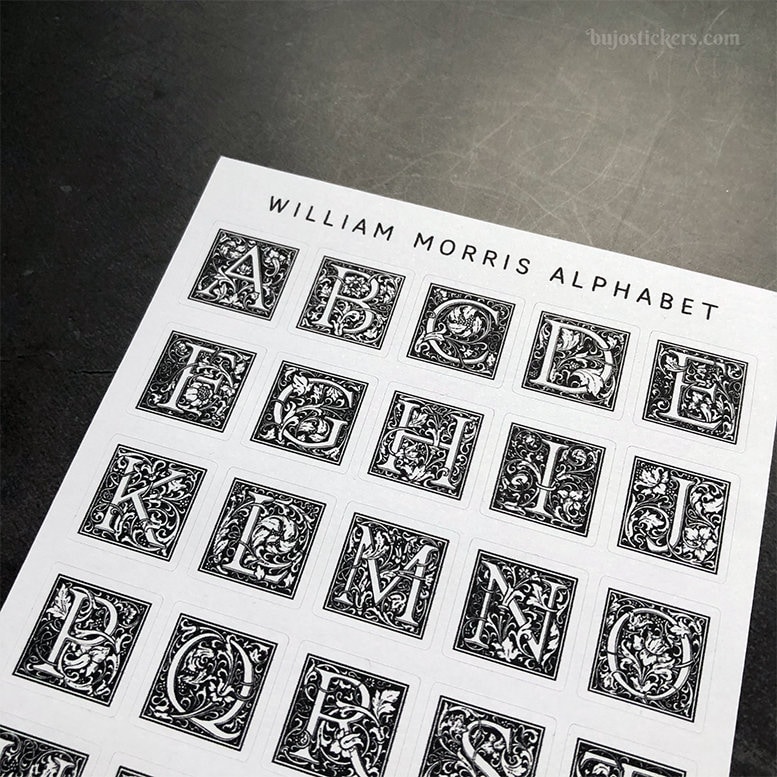 bujostickers.com
WILLIAM MORRIS ALPHABET
A B C D E
F G H I J
K L M N O
P Q R S